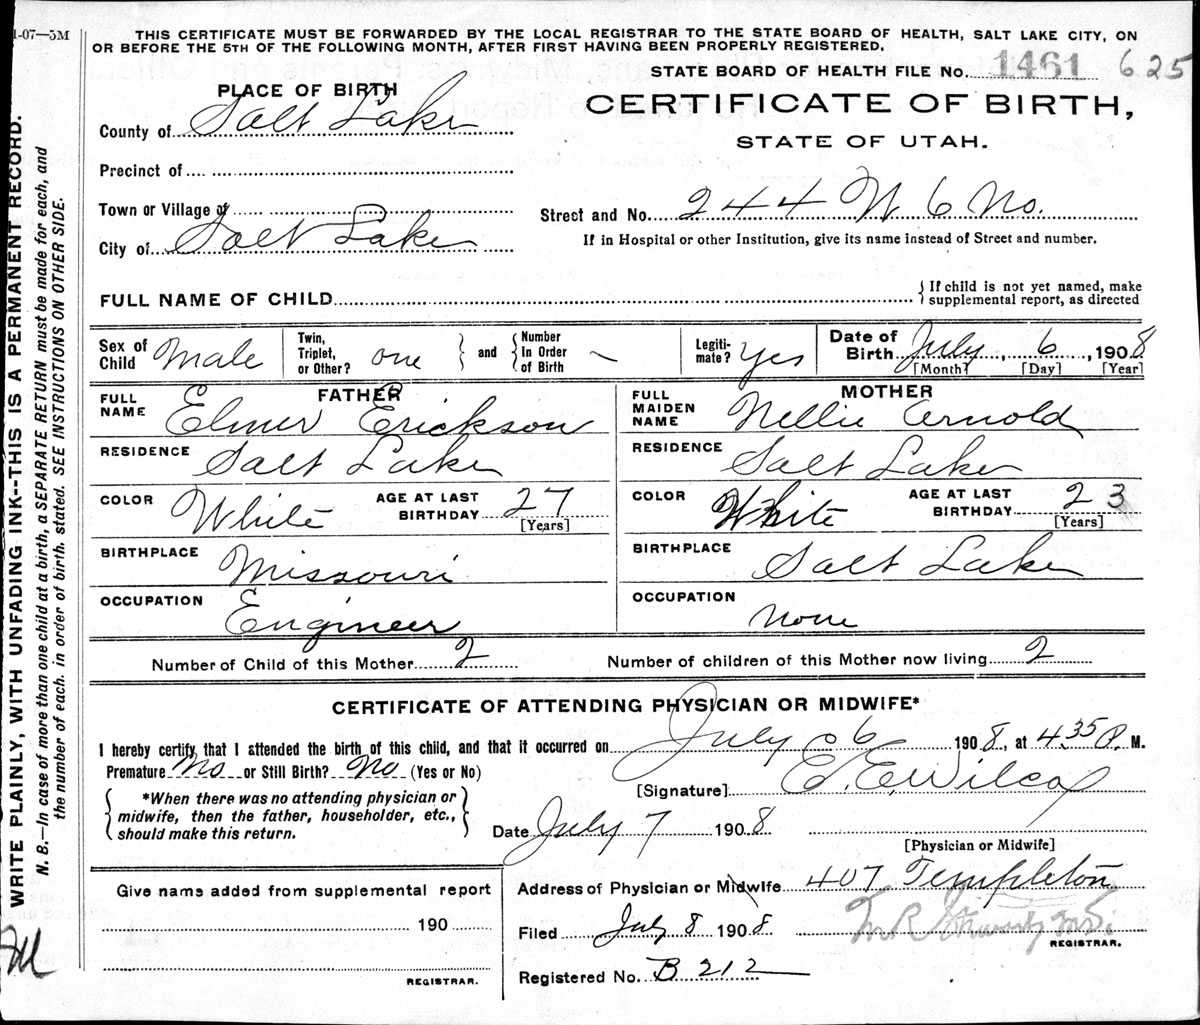 1-07—5M
THIS CERTIFICATE MUST BE FORWARDED BY THE LOCAL REGISTRAR TO THE STATE BOARD OF HEALTH, SALT LAKE CITY, ON
OR BEFORE THE 5TH OF THE FOLLOWING MONTH, AFTER FIRST HAVING BEEN PROPERLY REGISTERED.
STATE BOARD OF HEALTH FILE No. 1461 625
PLACE OF BIRTH
CERTIFICATE OF BIRTH,
STATE OF UTAH.
County of Salt Lake
Precinct of
Town or Village of
Street and No. 244 W 6 No.
City of Salt Lake
If in Hospital or other Institution, give its name instead of Street and number.
FULL NAME OF CHILD
{ If child is not yet named, make
supplemental report, as directed
Sex of Child Male
Twin, Triplet, or Other? one } and { Number In Order of Birth —
Legiti-mate? Yes
Date of Birth July, 6, 1908
[Month] [Day] [Year]
FATHER
FULL NAME Elmer Erickson
MOTHER
FULL MAIDEN NAME Nellie Arnold
RESIDENCE Salt Lake
RESIDENCE Salt Lake
COLOR White AGE AT LAST BIRTHDAY 27 [Years]
COLOR White AGE AT LAST BIRTHDAY 23 [Years]
BIRTHPLACE Missouri
BIRTHPLACE Salt Lake
OCCUPATION Engineer
OCCUPATION None
Number of Child of this Mother 2
Number of children of this Mother now living 2
CERTIFICATE OF ATTENDING PHYSICIAN OR MIDWIFE*
I hereby certify, that I attended the birth of this child, and that it occurred on July 6 1908, at 4 35 P. M.
Premature No or Still Birth? No (Yes or No)
[Signature] E. E. Wilcox
{ *When there was no attending physician or
midwife, then the father, householder, etc.,
should make this return. }
Date July 7 1908
[Physician or Midwife]
Give name added from supplemental report
190
REGISTRAR.
Address of Physician or Midwife 407 Templeton
Filed July 8 1908
REGISTRAR.
Registered No. B 212
WRITE PLAINLY, WITH UNFADING INK--THIS IS A PERMANENT RECORD.
N. B.—In case of more than one child at a birth, a SEPARATE RETURN must be made for each, and
the number of each, in order of birth, stated. SEE INSTRUCTIONS ON OTHER SIDE.